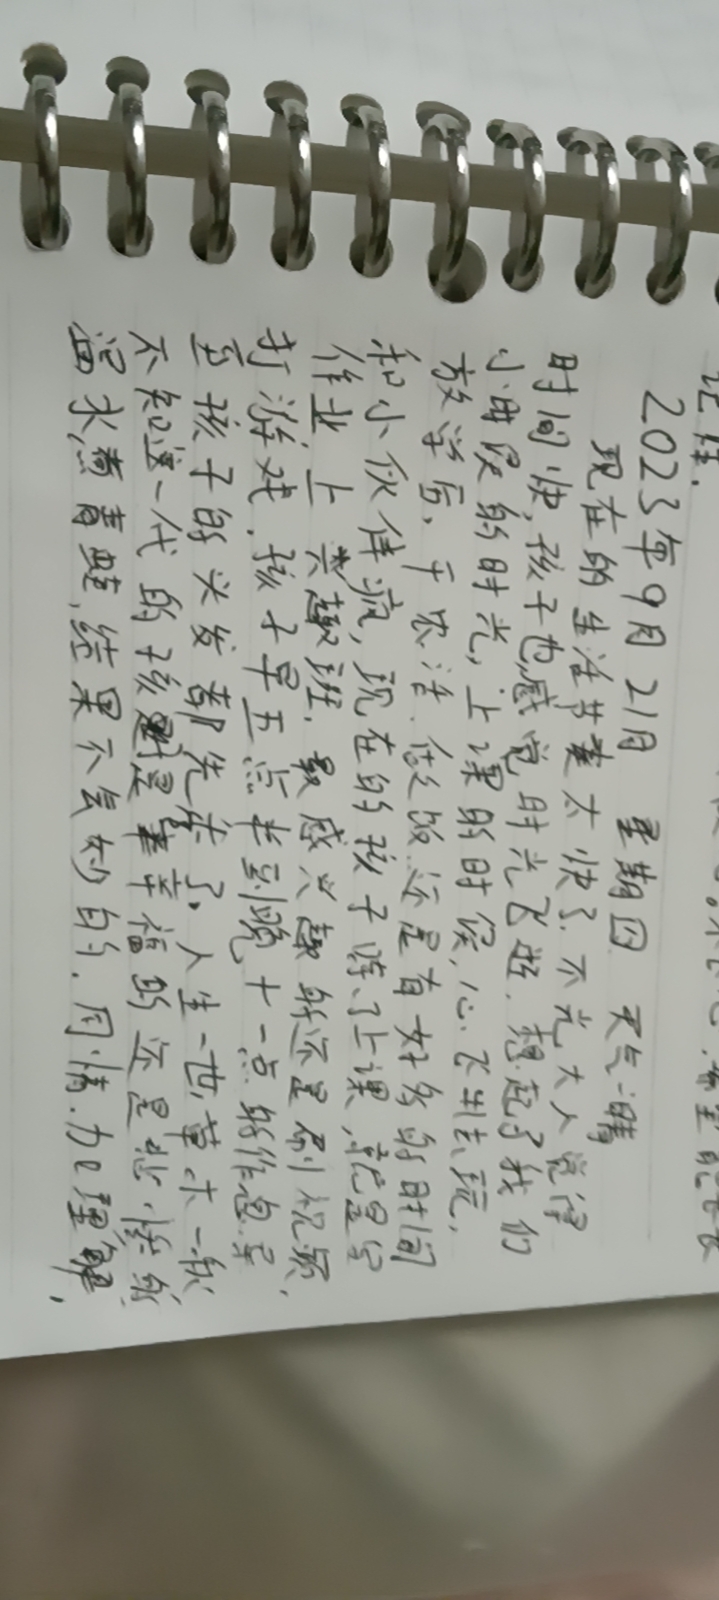 记住.
2023年9月21日 星期四 天气:晴
现在的生活节奏太快了.不光大人觉得
时间快,孩子也感觉时光飞逝.想起了我们
小时候的时光,上课的时候,心飞出去玩,
放学后,干农活.做饭.还是有好多的时间
和小伙伴疯,现在的孩子除了上课,就是写
作业上兴趣班.最感兴趣的还是刷视频.
打游戏.孩子早五点半到晚十一点的作息.导
至孩子的头发都先 了.人生一世,草木一秋
不知这一代的孩 是幸福的还是悲惨的
温水煮青蛙,结果不会妙的.同情.加理解.